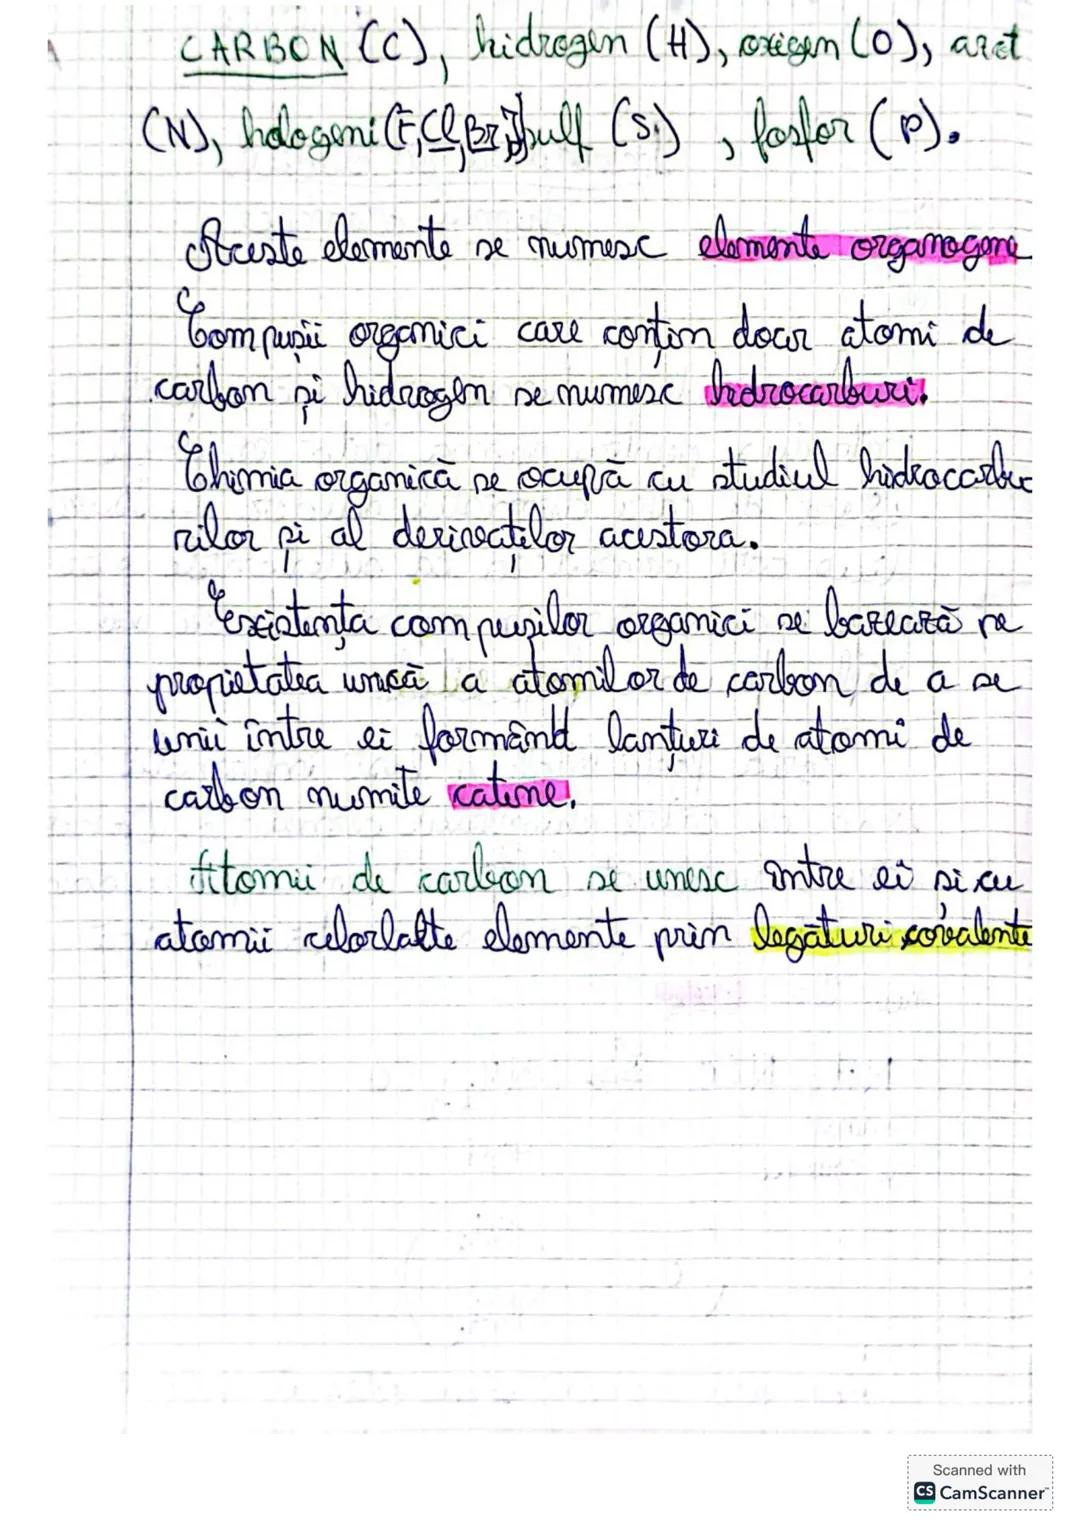 CARBON (C), hidrogen (H), oxigen (O), azot
(N), halogeni (F, Cl, Br, I) sulf (S) , fosfor (P).
Aceste elemente se numesc elemente organogene
Compușii organici care conțin doar atomi de
carbon și hidrogen se numesc hidrocarburi.
Chimia organică se ocupă cu studiul hidrocarbu
rilor și al derivaților acestora.
Existența compușilor organici se bazează pe
proprietatea unică a atomilor de carbon de a se
unii între ei formând lanțuri de atomi de
carbon numite catene.
Atomii de carbon se unesc între ei si cu
atomii celorlalte elemente prin legături covalente
Scanned with
CS CamScanner